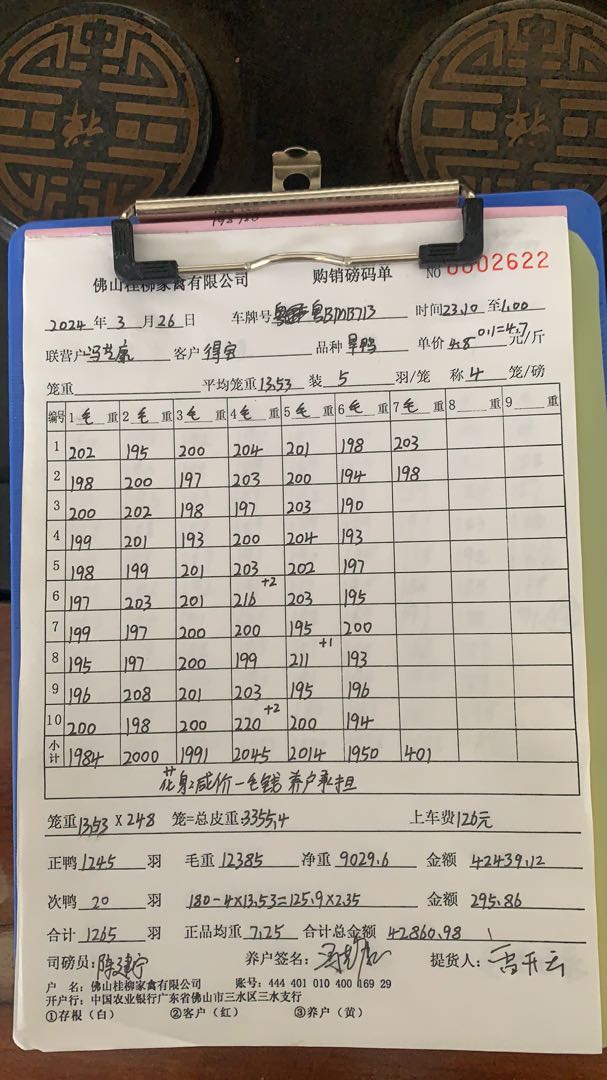 佛山桂柳家禽有限公司 购销磅码单 NO 0002622
2024 年 3 月 26 日 车牌号 时间 23.10 至 1.00
联营户 客户 得宝 品种 旱鸭 单价 4.8 0.1=4.7 元/斤
笼重 平均笼重 13.53 装 5 羽/笼 称 4 笼/磅
编号 1 毛 重 2 毛 重 3 毛 重 4 毛 重 5 毛 重 6 毛 重 7 毛 重 8 重 9 重
1 202 195 200 204 201 198 203
2 198 200 197 203 200 194 198
3 200 202 198 197 203 190
4 199 201 193 200 204 193
5 198 199 201 203 202 197
6 197 203 201 216 +2 203 195
7 199 197 200 200 195 200
8 195 197 200 199 211 +1 193
9 196 208 201 203 195 196
10 200 198 200 220 +2 200 194
小计 1984 2000 1991 2045 2014 1950 401
花身减价一毛钱 养户承担
笼重 13.53 X 248 笼=总皮重 3355.4 上车费 126元
正鸭 1245 羽 毛重 12385 净重 9029.6 金额 42439.12
次鸭 20 羽 180-4×13.53=125.9×2.35 金额 295.86
合计 1265 羽 正品均重 7.25 合计总金额 42860.98
司磅员: 养户签名: 提货人:
户 名:佛山桂柳家禽有限公司 账号:444 401 010 400 169 29
开户行:中国农业银行广东省佛山市三水区三水支行
①存根(白) ②客户(红) ③养户(黄)